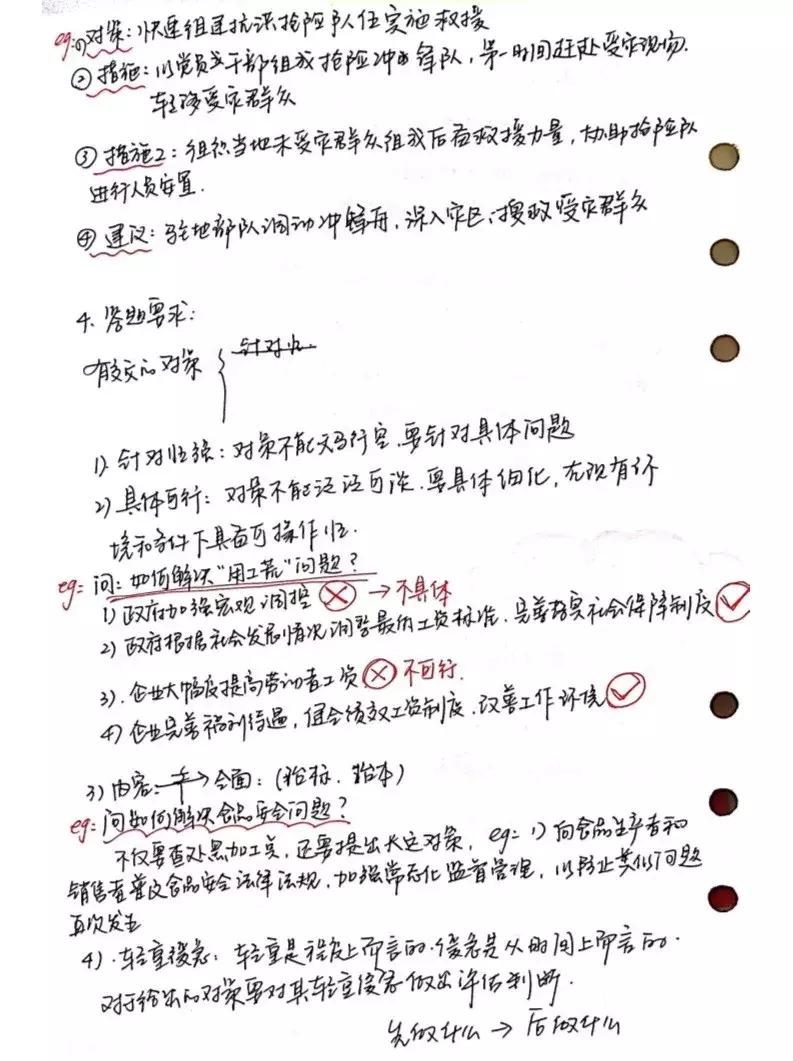 eg:①对策:快速组建抗洪抢险队伍实施救援
②措施:以党员或干部组成抢险冲锋队,第一时间赶赴受灾现场.
转移受灾群众
③措施2:组织当地未受灾群众组成后备救援力量,协助抢险队
进行人员安置.
④建议:驻地部队调动冲锋舟,深入灾区,搜救受灾群众
4.答题要求:
有效的对策 { 针对性
1).针对性强:对策不能天马行空,要针对具体问题
2)具体可行:对策不能泛泛而谈.要具体细化,在现有环
境和条件下具备可操作性.
eg:问:如何解决"用工荒"问题?
1)政府加强宏观调控 ⊗→不具体
2)政府根据社会发展情况调整最低工资标准、完善落实社会保障制度 ✓
3).企业大幅度提高劳动者工资 ⊗不可行.
4)企业完善福利待遇,健全绩效工资制度.改善工作环境 ✓
3)内容:→全面:(治标、治本)
eg:问如何解决食品安全问题?
不仅要查处黑加工点,还要提出长远对策,eg:1)向食品生产者和
销售者普及食品安全法律法规,加强常态化监督管理,以防止类似问题
再次发生
4).轻重缓急:轻重是程度上而言的.缓急是从时间上而言的.
对于给出的对策要对其轻重缓急做出评估判断.
先做什么→后做什么